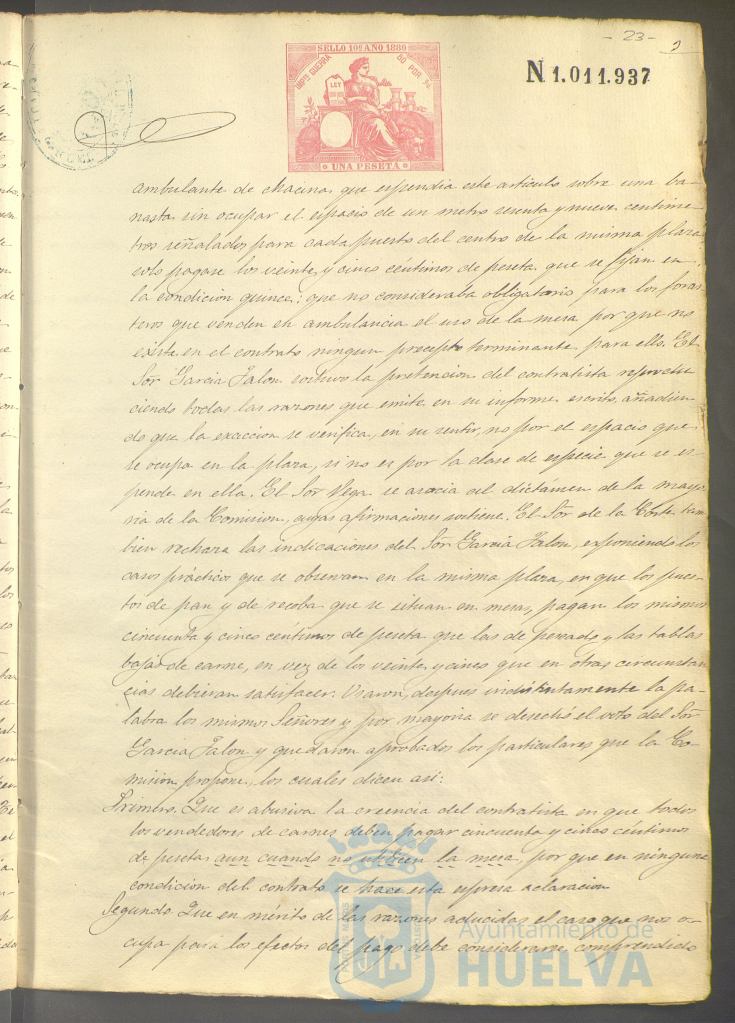 - 23 -
SELLO 10º AÑO 1880
IMPTO GUERRA 50 POR %
LEY
UNA PESETA
N 1.011.937
ambulante de chacina, que espendia este articulo sobre una ba-
nasta sin ocupar el espacio de un metro sesenta y nueve centime-
tros señalados para cada puesto del centro de la misma plaza,
solo pagase los veinte y cinco céntimos de peseta que se fijan en
la condicion quince; que no consideraba obligatorio para los foras-
teros que venden en ambulancia el uso de la mesa por que no
existe en el contrato ningun precepto terminante para ello. El
Sor Garcia Jalon sostuvo la pretencion del contratista reprodu-
ciendo todas las razones que emite en su informe escrito, añadien-
do que la exaccion se verifica, en su sentir, no por el espacio que
se ocupa en la plaza, si no es por la clase de especie que se es-
pende en ella. El Sor Vega se asocia al dictámen de la mayo-
ria de la Comision, cuyas afirmaciones sostiene. El Sor de la Corte tam-
bien rechaza las indicaciones del Sor Garcia Jalon, esponiendo los
casos prácticos que se observan en la misma plaza, en que los pues-
tos de pan y de recoba que se situan en mesas, pagan los mismos
cincuenta y cinco céntimos de peseta que las de pescado y las tablas
bajas de carne, en vez de los veinte y cinco que en otras circunstan-
cias debieran satisfacer. Usaron, despues indistintamente la pa-
labra los mismos Señores y por mayoria se desechó el voto del Sor
Garcia Jalon y quedaron aprobados los particulares que la Co-
mision propone, los cuales dicen asi:
Primero. Que es abusiva la creencia del contratista en que todos
los vendedores de carnes deben pagar cincuenta y cinco céntimos
de pesetas aun cuando no utilicen la mesa, por que en ninguna
condicion del contrato se hace esta espresa aclaracion
Segundo. Que en mérito de las razones aducidas el caso que nos o-
cupa para los efectos del pago debe considerarse comprendido
Ayuntamiento de
HUELVA